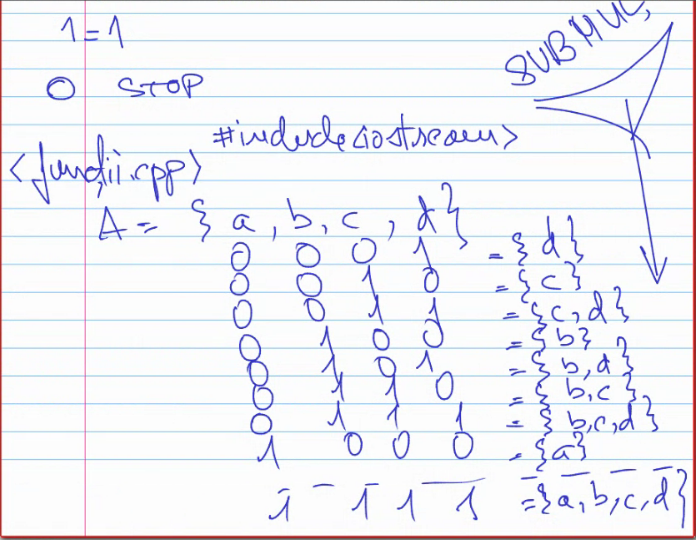 1 = 1
0 STOP
SUBMUL
#include <iostream>
<funcții.cpp>
A = { a , b , c , d }
0 0 0 1 = { d }
0 0 1 0 = { c }
0 0 1 1 = { c , d }
0 1 0 0 = { b }
0 1 0 1 = { b , d }
0 1 1 0 = { b , c }
0 1 1 1 = { b , c , d }
1 0 0 0 = { a }
1 1 1 1 = { a , b , c , d }